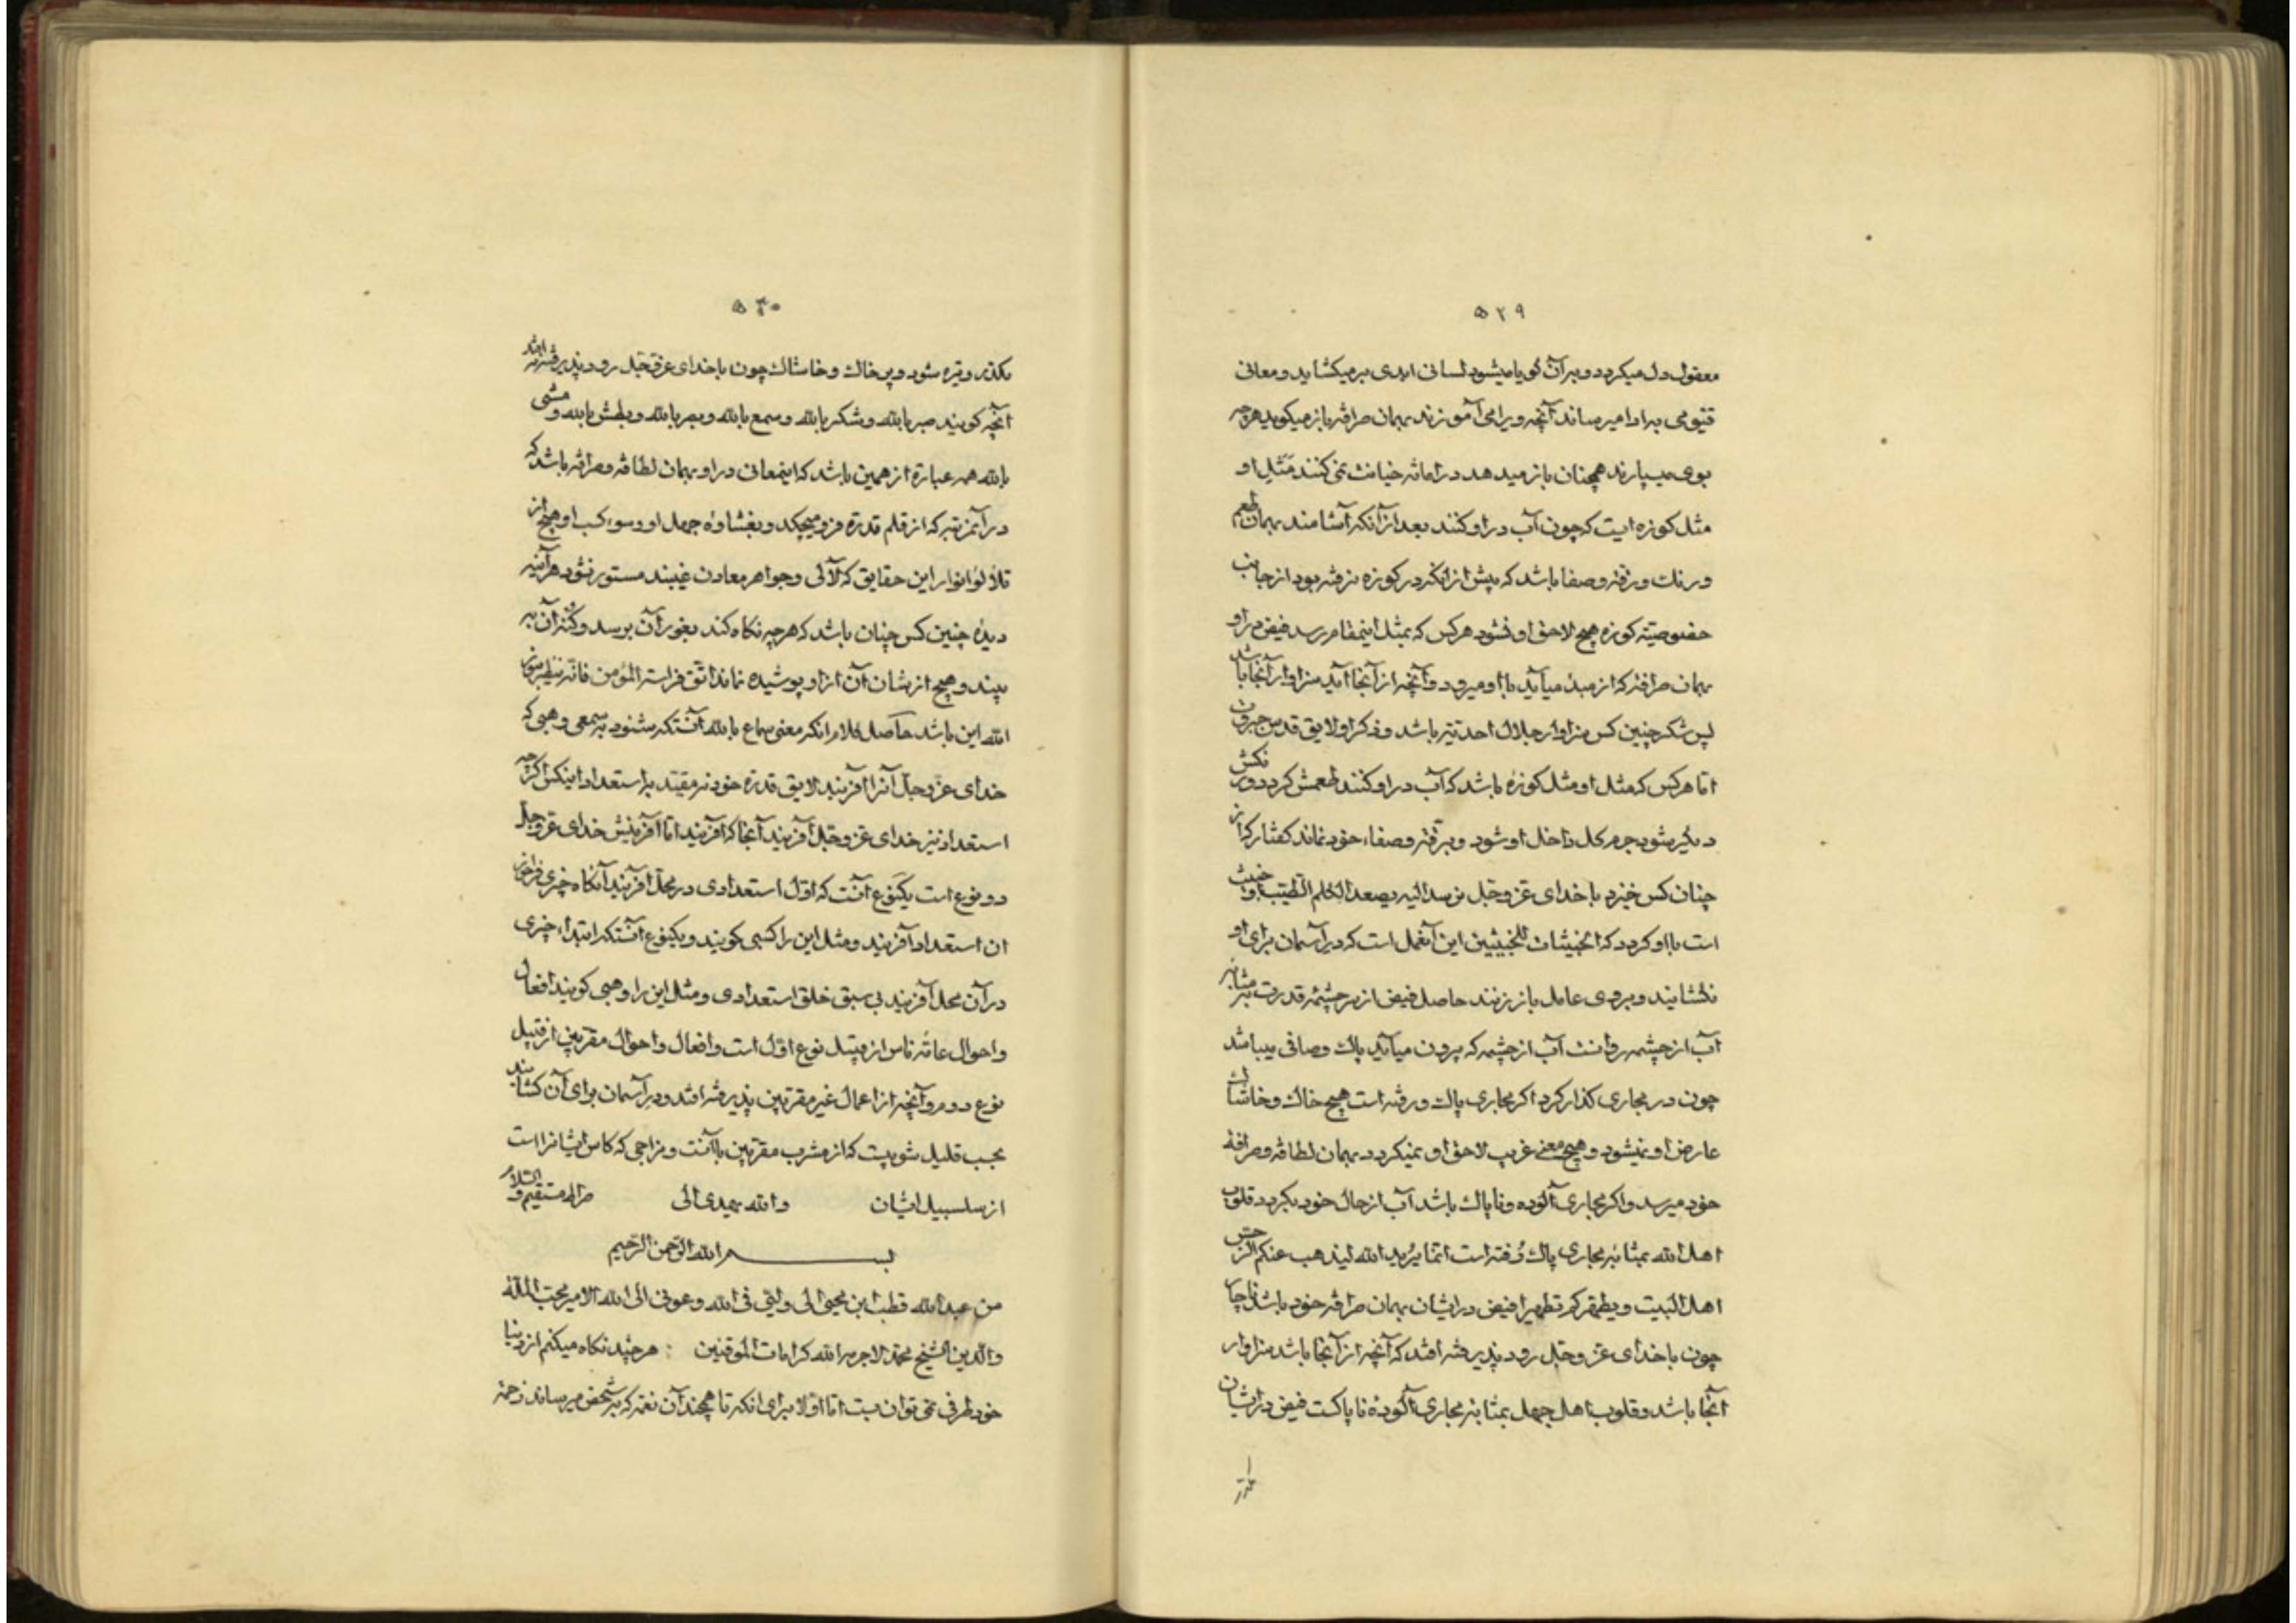 ۵۲۹
معقول دل میکردد و بر آن کویا میشود لسانی ابدی برمیکشاید و معانی
قیومی براد امیرساند آنچه ویرا می آموزند بهمان صرافة باز میکوید هرچه
بوی میسپارند همچنان باز میدهد در امانة خیانت نمی کنند مثل او
مثل کوزه ایست که چون آب در او کنند بعد از آنکه آشامند بهمان طعم
و رنك و رقة و صفا باشد که پیش از آنکه در کوزه نرفته بود از جانب
خصوصیة کوزه هیچ لاحق او نشود هر کس که بمثل اینمقام رسد فیض در او
بهمان صرافة که از مبدء میآید با او میرود و آنچه از آنجا آید سزاوار آنجا باشد
پس شکر چنین کس سزاوار جلال احدیّة باشد و ذکر او لایق قدس جبروت
امّا هر کس که مثل او مثل کوزهٔ باشد که آب در او کنند طعمش کردد و رنکش
دیکر شود جرم کل داخل او شود و برقّة و صفاء خود نماند کفتار که از
چنان کس خیزد با خدای عزّ و جّل نرسد الیه یصعد الکلم الطیّب او خبیث
است با او کردد که الخبیثات للخبیثین این آنعمل است که در آسمان برای او
نکشایند و بروی عامل باز زنند حاصل فیض از سر چشمهٔ قدرت بمثابهٔ
آب از چشمه روانست آب از چشمه که بیرون میآید پاك و صافی میباشد
چون در مجاری کذار کرد اکر مجاری پاك و رفته است هیچ خاك و خاشاك
عارض او نمیشود و هیچ معنی غریب لاحق او نمیکردد بهمان لطافة و صرافة
خود میرسد و اکر مجاری آلوده و ناپاك باشد آب از حال خود بکردد قلوب
اهل الله بمثابه مجاری پاك رُفته است انّما یُرید الله لیذهب عنکم الرّجس
اهل البیت و یطهّرکم تطهیرا فیض در ایشان بهمان صرافة خود باشد ناچار
چون با خدای عزّ و جّل رود پذیرفته افتد که آنچه از آنجا باشد سزاوار
آنجا باشد و قلوب اهل جهل بمثابه مجاری آلودهٔ ناپاکست فیض در ایشان
۵۳۰
مکدّر و تیره شود و پر خاك و خاشاك چون با خدای عزّ و جّل رود پذیرفته نیفتد
آنچه کویند صبر بالله و شکر بالله و سمع بالله و بصر بالله و بطش بالله و مشی
بالله همه عبارة از همین باشد که اینمعانی در او بهمان لطافة و صرافة باشد که
در آنمرتبه که از قلم قدرة فرو میچکد و بغشاوهٔ جهل او و سوء کسب او هیچ از
تلألؤ انوار این حقایق که لآلی و جواهر معادن غیبند مستور نشود هر آینه
دیدهٔ چنین کس چنان باشد که هر چه نکاه کند بغور آن برسد و کُنه آن به
بیند و هیچ از نشان آن از او پوشیده نماند اتّق فراسة المؤمن فانّه ینظر بنور
الله این باشد حاصل کلام آنکه معنی سماع بالله آنستکه بشنود بسمعی وهبی که
خدای عزّ و جلّ آنرا آفریند لایق قدرة خود نه مقیّد باستعداد اینکس اکر چه
استعداد نیز خدای عزّ و جّل آفریند آنجا که آفریند امّا آفرینش خدای عزّ و جلّ
دو نوع است یکنوع آنست که اوّل استعدادی در محلّ آفریند آنکاه چیزی فراخور
آن استعداد آفریند و مثل این را کسبی کویند و یکنوع آنستکه ابتداء چیزی
در آن محل آفریند بی سبق خلق استعدادی و مثل این را وهبی کویند افعال
و احوال عامّه ناس از قبیل نوع اوّل است و افعال و احوال مقرّبین از قبیل
نوع دوم و آنچه از اعمال غیر مقرّبین پذیرفته افتد و در آسمان برای آن کشایند
بحسب قلیل شوبیست که از مشرب مقرّبین با آنست و مزاجی که کاس ایشانرا است
از سلسبیل ایشان و الله یهدی الی صراط مستقیم و السّلام
بسم الله الرّحمن الرّحیم
من عبد الله قطب ابن محیی الی ولیّی فی الله و عونی الی الله الامیر محبّ الملّة
والدّین الشیخ محمّد لاجرم الله کرامات الموقنین : هر چند نکاه میکنم از دنیا
خود طرفی نمی توان بست امّا اوّلا برای آنکه تا همچند آن نعمة که بشخص میرساند زحمة